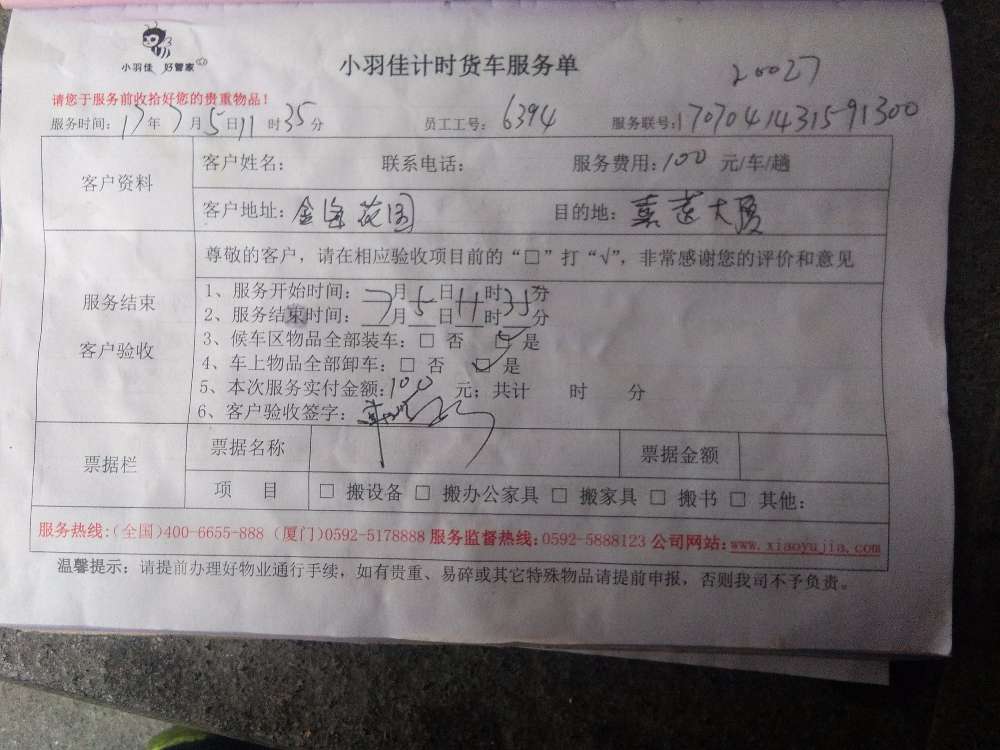 小羽佳 好管家
小羽佳计时货车服务单
20027
请您于服务前收拾好您的贵重物品！
服务时间：17年7月5日11时35分 员工工号：6394 服务联号：1707041431591300
客户资料
客户姓名： 联系电话： 服务费用：100 元/车/趟
客户地址：金海花园 目的地：嘉莲大厦
服务结束
客户验收
尊敬的客户，请在相应验收项目前的“□”打“√”，非常感谢您的评价和意见
1、服务开始时间：7月5日11时35分
2、服务结束时间：7月5日11时35分
3、候车区物品全部装车：□ 否 □ 是
4、车上物品全部卸车：□ 否 □ 是
5、本次服务实付金额：100 元；共计 时 分
6、客户验收签字：
票据栏
票据名称 票据金额
项 目 □ 搬设备 □ 搬办公家具 □ 搬家具 □ 搬书 □ 其他：
服务热线:(全国)400-6655-888 (厦门)0592-5178888 服务监督热线:0592-5888123 公司网站:www.xiaoyujia.com
温馨提示：请提前办理好物业通行手续，如有贵重、易碎或其它特殊物品请提前申报，否则我司不予负责。